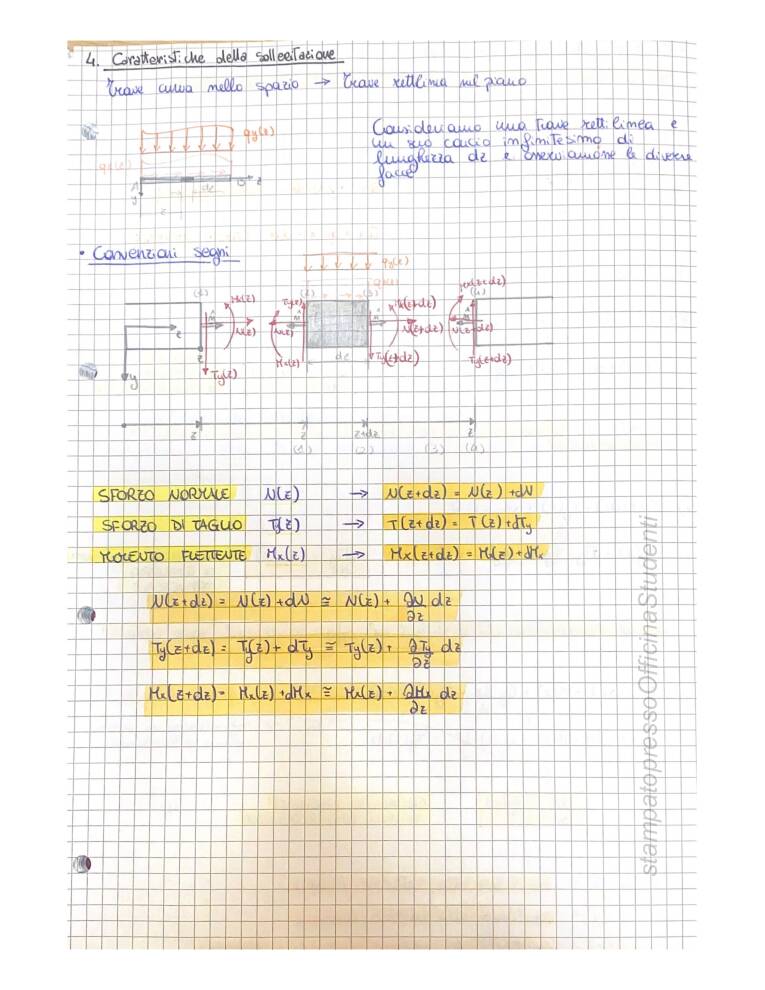 4. Caratteristiche della sollecitazione
Trave curva nello spazio → Trave rettilinea nel piano
qy(z)
Consideriamo una trave rettilinea e
un suo concio infinitesimo di
lunghezza dz e osserviamone le diverse
facce
A
dz
B
z
y
z
• Convenzioni segni
qy(z)
Mx(z)
N(z)
Ty(z)
z
y
Ty(z)
N(z)
Mx(z)
dz
Mx(z+dz)
N(z+dz)
Ty(z+dz)
Mx(z+dz)
N(z+dz)
Ty(z+dz)
z
z
z+dz
(1) (2) (3) (4)
SFORZO NORMALE N(z) → N(z+dz) = N(z) + dN
SFORZO DI TAGLIO Ty(z) → T(z+dz) = T(z) + dTy
MOMENTO FLETTENTE Mx(z) → Mx(z+dz) = Mx(z) + dMx
N(z+dz) = N(z) + dN ≅ N(z) + ∂N/∂z dz
Ty(z+dz) = Ty(z) + dTy ≅ Ty(z) + ∂Ty/∂z dz
Mx(z+dz) = Mx(z) + dMx ≅ Mx(z) + ∂Mx/∂z dz
stampatopressoOfficinaStudenti